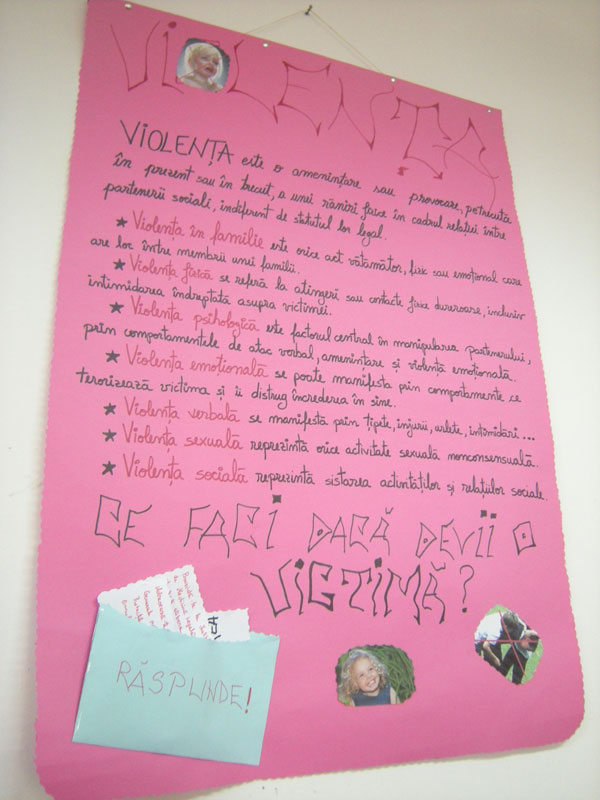 VIOLENȚA
VIOLENȚA este o amenințare sau provocare, petrecută
în prezent sau în trecut, a unei răniri fizice în cadrul relației între
partenerii sociali, indiferent de statutul lor legal.
★ Violența în familie este orice act vătămător, fizic sau emoțional care
are loc între membrii unei familii.
★ Violența fizică se referă la atingeri sau contacte fizice dureroase, inclusiv
intimidarea îndreptată asupra victimei.
★ Violența psihologică este factorul central în manipularea partenerului,
prin comportamentele de atac verbal, amenintare și violență emoțională.
★ Violența emoțională se poate manifesta prin comportamente ce
terorizează victima și îi distrug încrederea în sine.
★ Violența verbală se manifestă prin țipete, injurii, urlete, intimidări...
★ Violența sexuală reprezintă orice activitate sexuală nonconsensuală.
★ Violența socială reprezintă sistarea activităților și relațiilor sociale.
CE FACI DACĂ DEVII O
VICTIMĂ?
RĂSPUNDE!